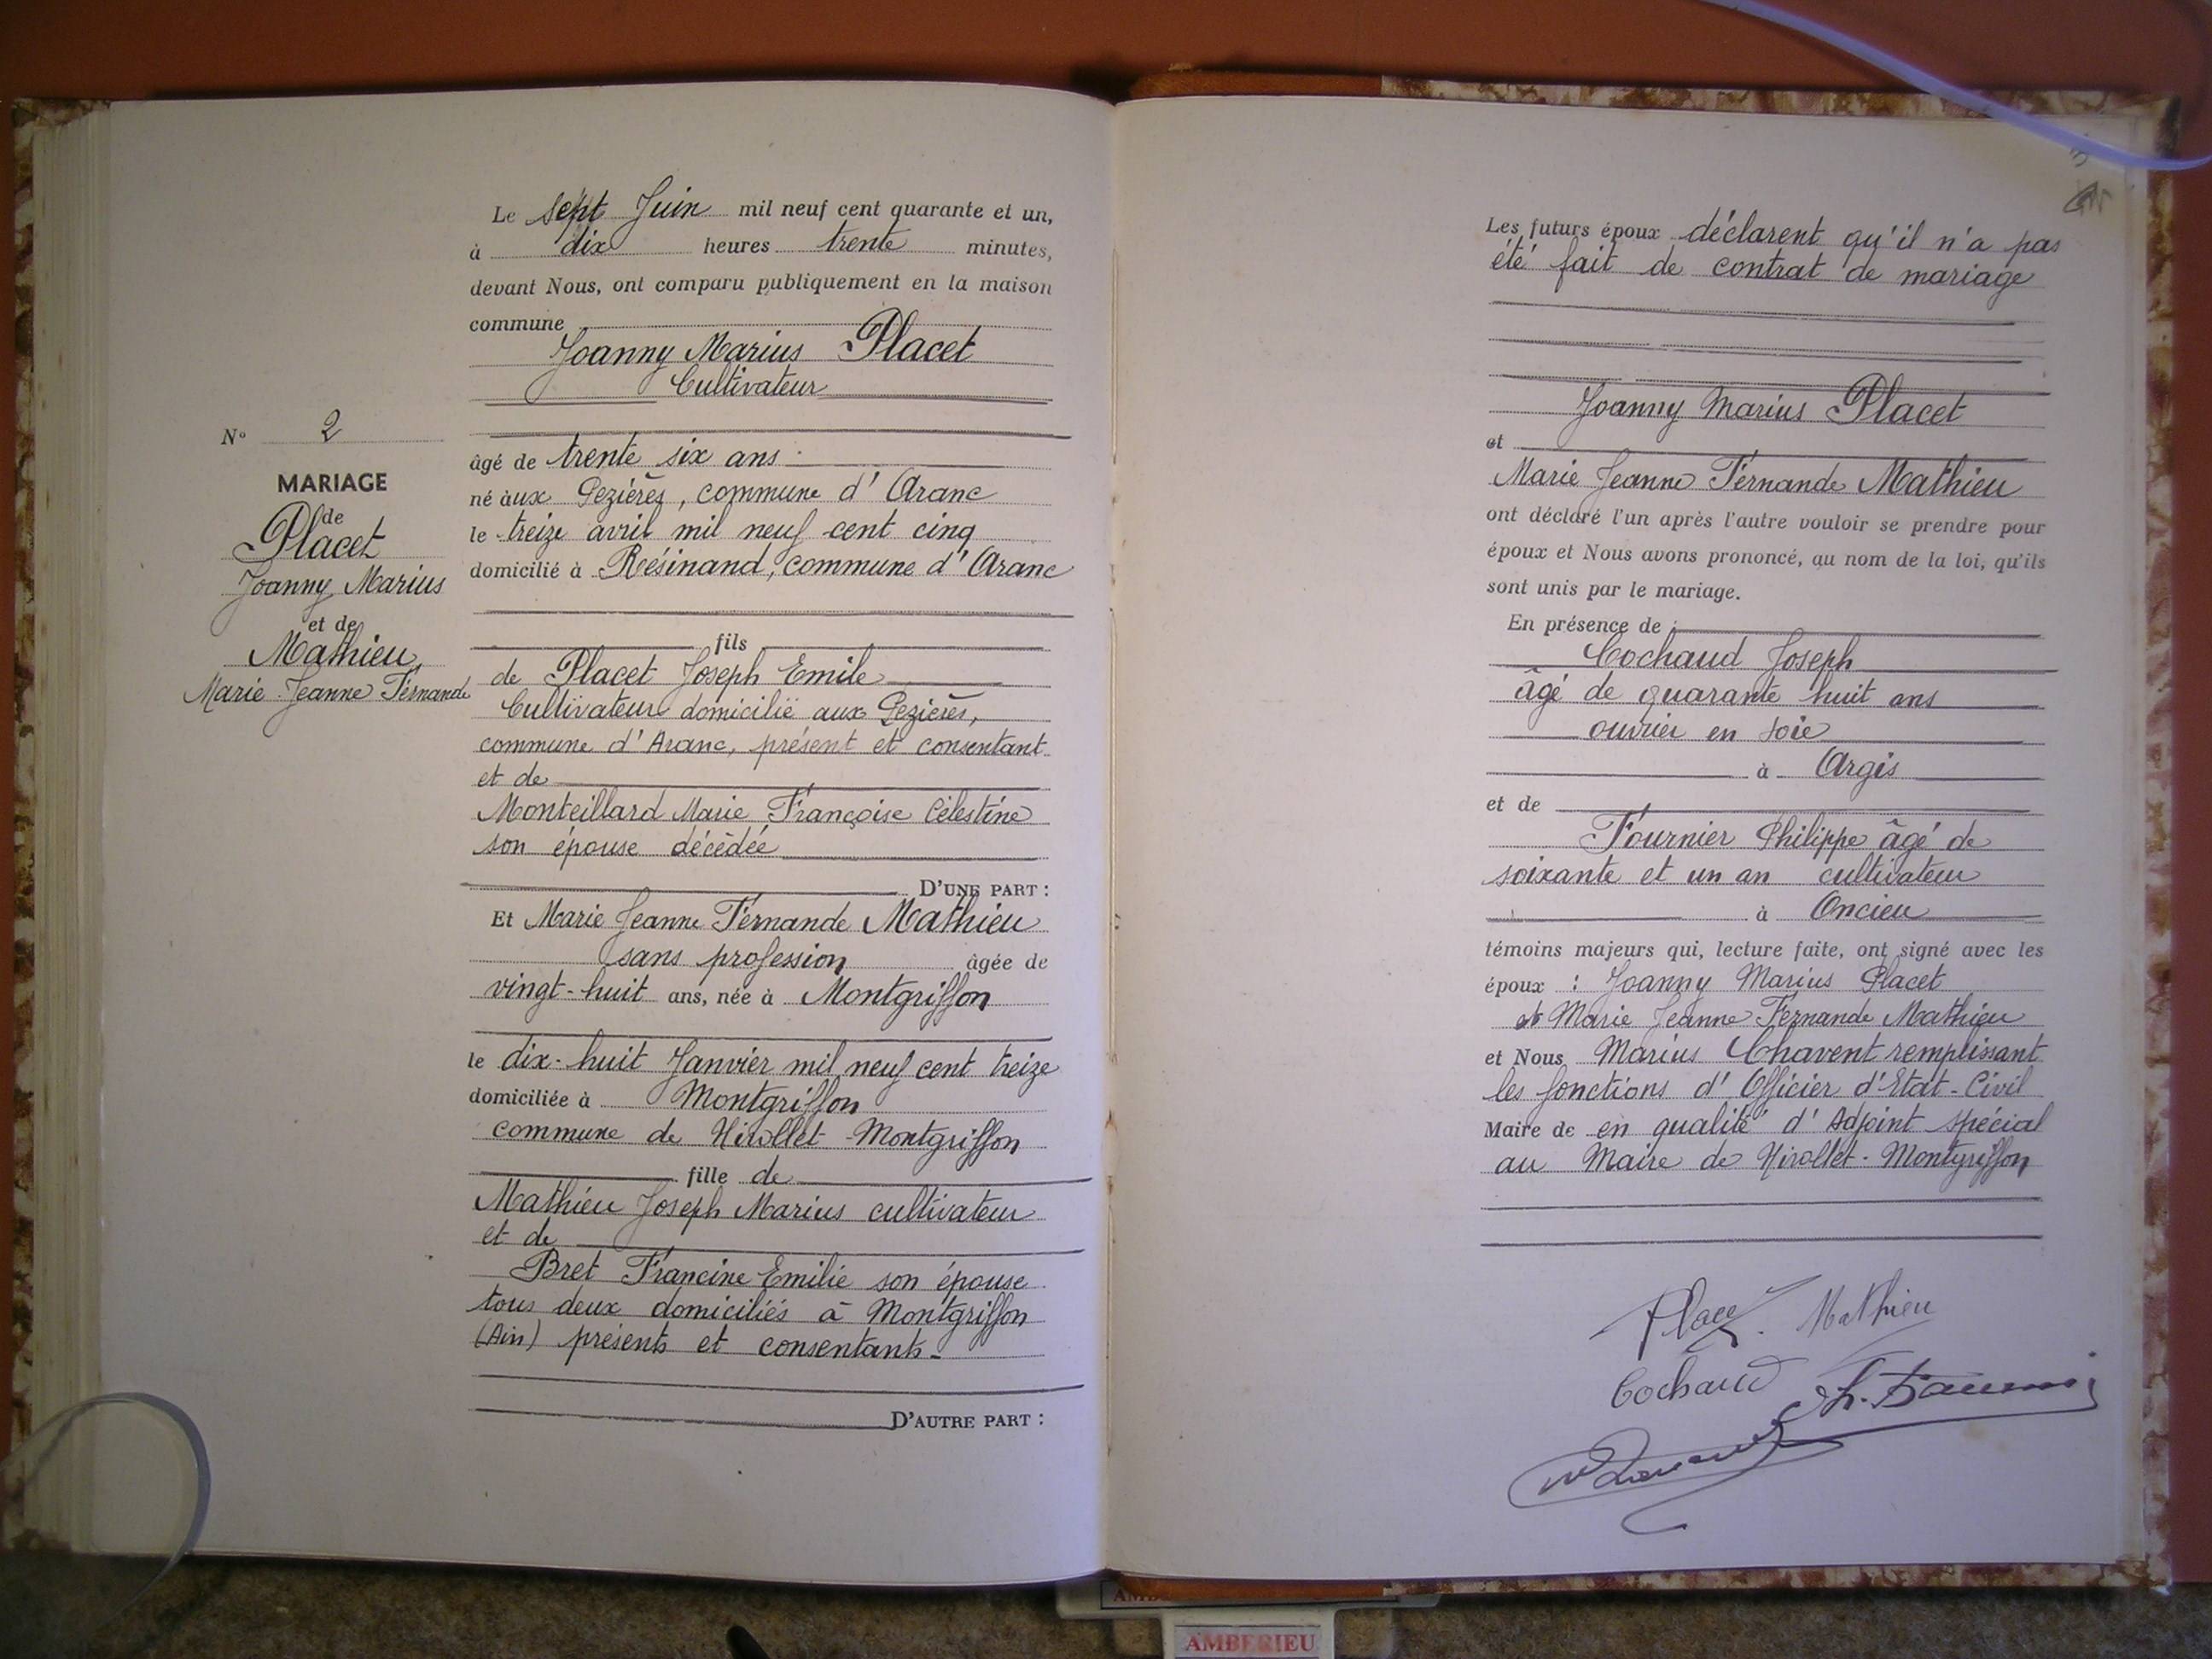 Le sept Juin mil neuf cent quarante et un,
à dix heures trente minutes,
devant Nous, ont comparu publiquement en la maison
commune
Joanny Marius Placet
Cultivateur
N° 2
MARIAGE
de
Placet
Joanny Marius
et de
Mathieu
Marie Jeanne Fernande
âgé de trente six ans
né aux Pezières, commune d'Aranc
le treize avril mil neuf cent cinq
domicilié à Résinand, commune d'Aranc
fils
de Placet Joseph Emile
Cultivateur domicilié aux Pezières,
commune d'Aranc, présent et consentant
et de
Monteillard Marie Françoise Célestine
son épouse décédée
D'UNE PART :
Et Marie Jeanne Fernande Mathieu
sans profession âgée de
vingt-huit ans, née à Montgriffon
le dix-huit Janvier mil neuf cent treize
domiciliée à Montgriffon
commune de Nivollet-Montgriffon
fille de
Mathieu Joseph Marius cultivateur
et de
Bret Francine Emilie son épouse
tous deux domiciliés à Montgriffon
(Ain) présents et consentants-
D'AUTRE PART :
Les futurs époux déclarent qu'il n'a pas
été fait de contrat de mariage
Joanny Marius Placet
et
Marie Jeanne Fernande Mathieu
ont déclaré l'un après l'autre vouloir se prendre pour
époux et Nous avons prononcé, au nom de la loi, qu'ils
sont unis par le mariage.
En présence de :
Cochaud Joseph
âgé de quarante huit ans
ouvrier en soie
à Argis
et de
Fournier Philippe âgé de
soixante et un an cultivateur
à Oncieu
témoins majeurs qui, lecture faite, ont signé avec les
époux : Joanny Marius Placet
et Marie Jeanne Fernande Mathieu
et Nous Marius Chavent remplissant
les fonctions d'Officier d'Etat-Civil
Maire de en qualité d'Adjoint spécial
au Maire de Nivollet-Montgriffon
Placet Mathieu
Cochaud
AMBERIEU